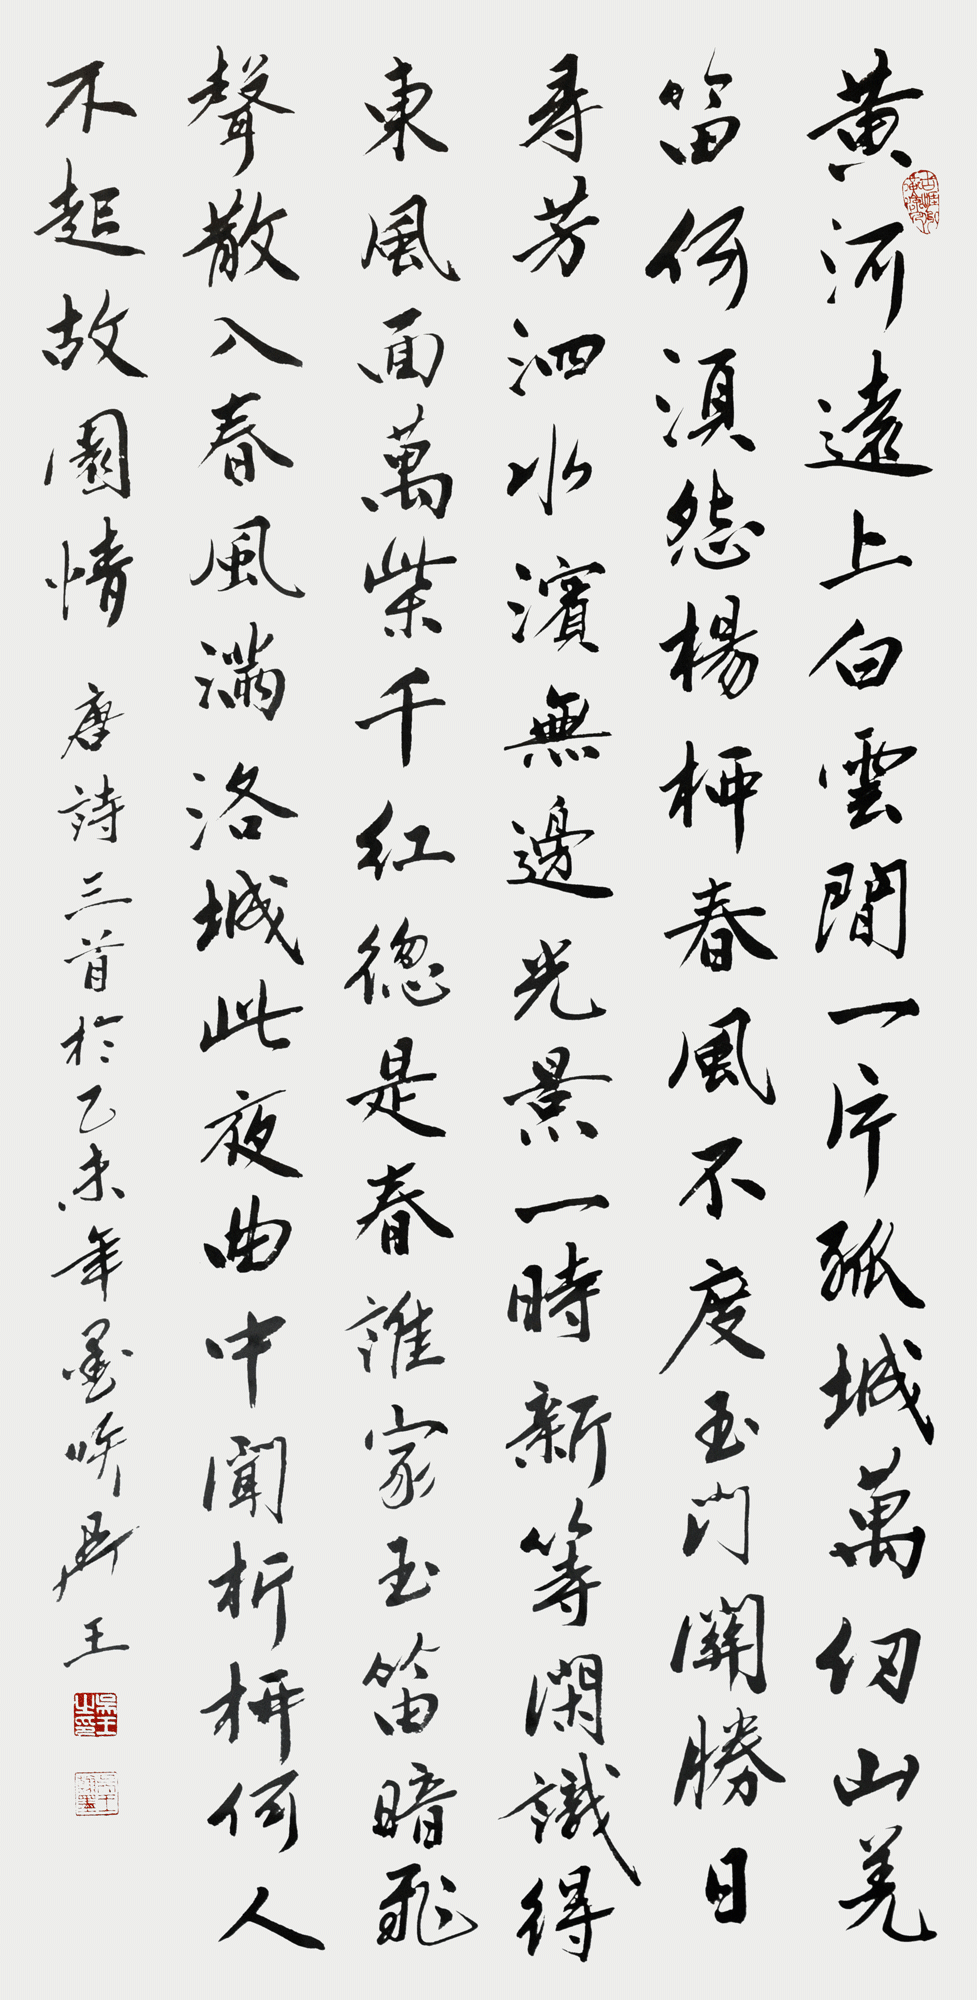 黃河遠上白雲間一片孤城萬仞山羌
笛何須怨楊柳春風不度玉門關勝日
尋芳泗水濱無邊光景一時新等閑識得
東風面萬紫千紅總是春誰家玉笛暗飛
聲散入春風滿洛城此夜曲中聞折柳何人
不起故園情
唐詩三首於乙未年墨吟齋王